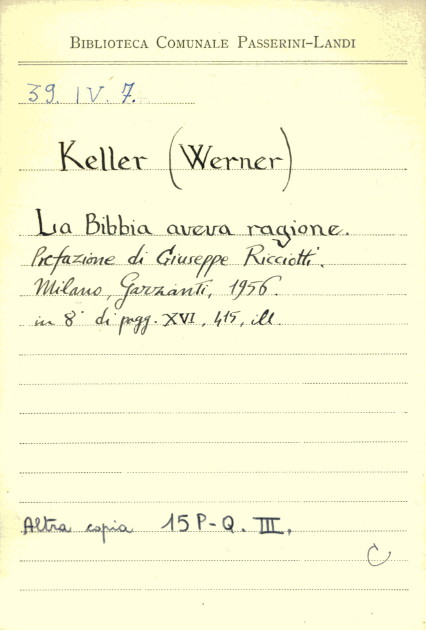 BIBLIOTECA COMUNALE PASSERINI-LANDI
39. IV. 7.
Keller (Werner)
La Bibbia aveva ragione.
Prefazione di Giuseppe Ricciotti.
Milano, Garzanti, 1956.
in 8° di pagg. XVI, 415, ill.
Altra copia 15 P-Q. III.
C